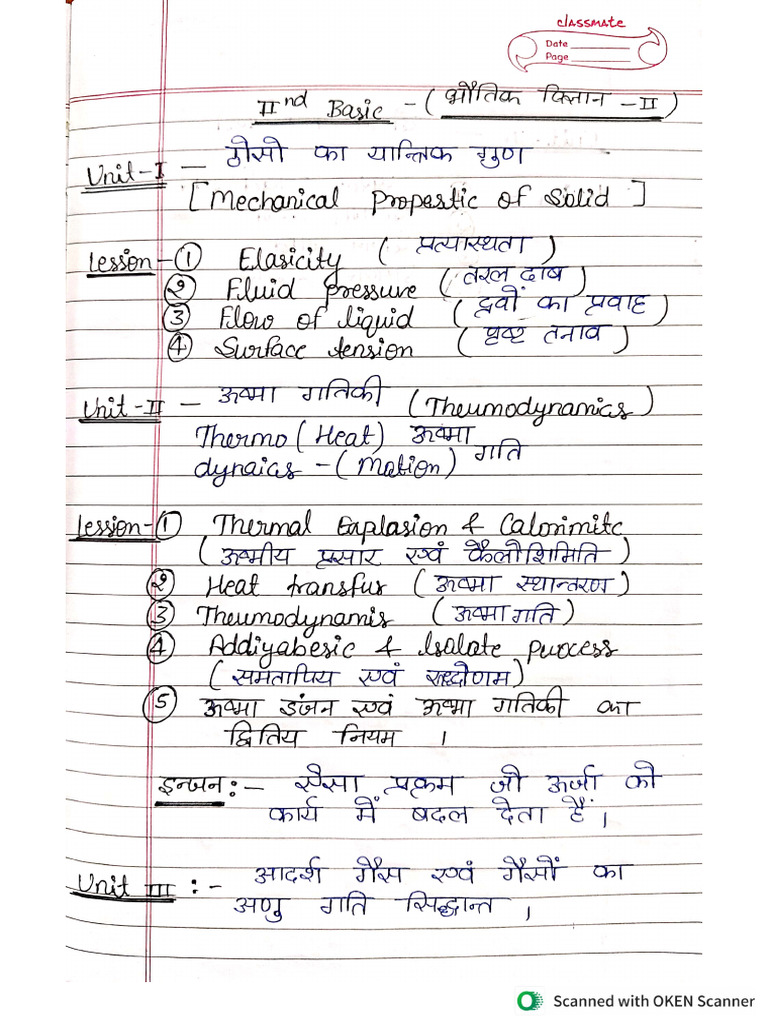 classmate
Date
Page
IInd Basic - (भौतिक विज्ञान - II)
Unit-I — ठोसो का यान्त्रिक गुण
[Mechanical Propestic of Solid]
Lesson-① Elasicity (प्रत्यास्थता)
② Fluid pressure (तरल दाब)
③ Flow of liquid (द्रवों का प्रवाह)
④ Surface tension (पृष्ट तनाव)
Unit-II — ऊष्मा गतिकी (Theumodynamics)
Thermo (Heat) ऊष्मा
dynaics - (Motion) गति
Lession-① Thermal Explasion & Calorimitc
(ऊष्मीय प्रसार एवं कैलोरिमिति)
② Heat transfus (ऊष्मा स्थान्तरण)
③ Theumodynamis (ऊष्मा गति)
④ Addiyabesic & Isolate puocess
(समतापिय एवं रूद्धोष्म)
⑤ ऊष्मा इंजन एवं ऊष्मा गतिकी का
द्वितिय नियम ।
इन्जन:- सैसा प्रक्रम जो ऊर्जा को
कार्य में बदल देता हैं ।
Unit III :- आदर्श गैस एवं गैसों का
अणु गति सिद्धान्त ।
Scanned with OKEN Scanner